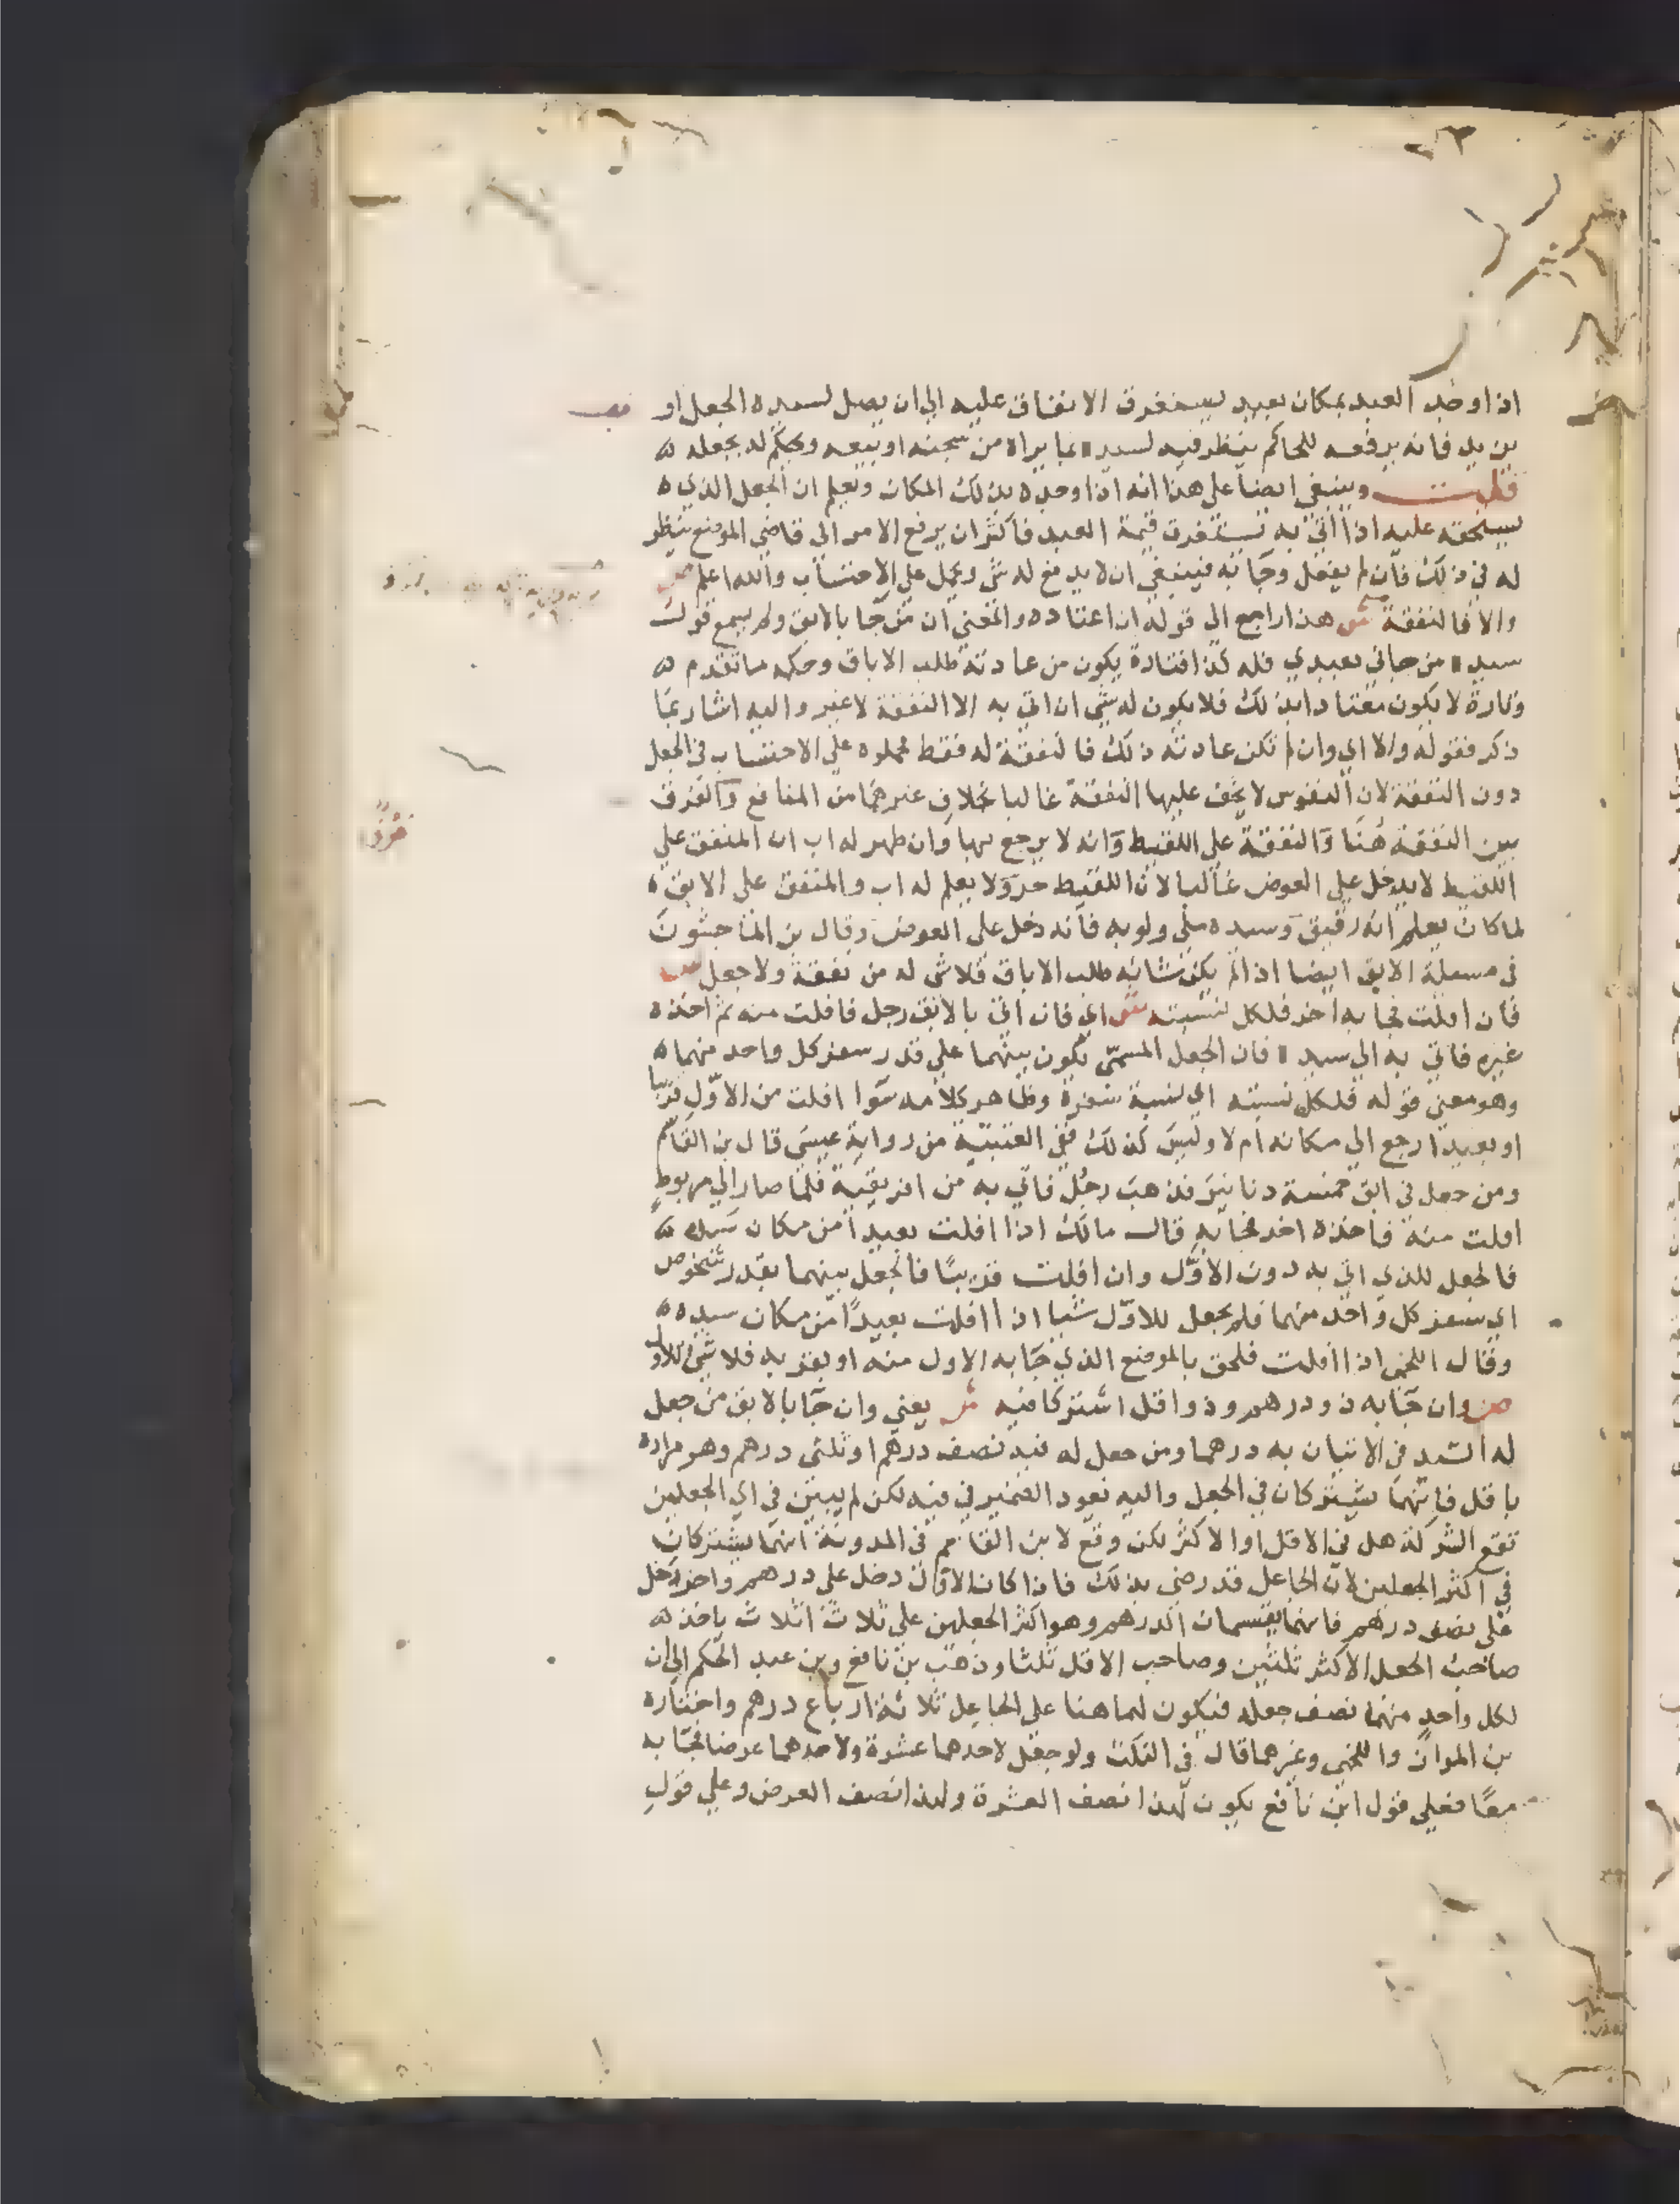 ٢٣
اذا وجد العبد بمكان بعيد يستغرق الانفاق عليه الي ان يصل لسيده الجعل او
يزيد فانه يرفعه للحاكم ينظر فيه لسيده بما يراه من سجنه او بيعه ويحكم له بجعله
قلت وينبغي ايضا علي هذا انه اذا وجده بذلك المكان ويعلم ان الجعل الذي
يستحقه عليه اذا اتي به تستغرق قيمة العبد فاكثر ان يرفع الامر الي قاضي الموضع ينظر
له في ذلك فان لم يفعل وجا به فينبغي ان لا يدفع له شي ويحمل علي الاحتساب والله اعلم ص
والا فالنفقة ش هذا راجع الي قوله ان اعتاده والمعني ان من جا بالابق ولم يسمع قول
سيده من جاني بعبدي فله كذا فتارة يكون من عادته طلب الاباق وحكمه ما تقدم
وتارة لا يكون معتادا بذلك فلا يكون له شي ان اتي به الا النفقة لا غير واليه اشار بما
ذكر فقوله والا اي وان لم تكن عادته ذلك فالنفقة له فقط فحملوه علي الاحتساب في الجعل
دون النفقة لان النفوس لا يخف عليها النفقة غالبا بخلاف غيرها من المنافع والفرق
بين النفقة هنا والنفقة علي اللقيط وانه لا يرجع بها وان ظهر له اب ان المنفق علي
اللقيط لا يدخل علي العوض غالبا لان اللقيط حر ولا يعلم له اب والمنفق علي الابق
لما كان يعلم انه رقيق وسيده ملي ولو به فانه دخل علي العوض وقال بن الماجشون
في مسئلة الابق ايضا اذا لم يكن شانه طلب الاباق فلا شي له من نفقة ولا جعل ص
فان افلت فجا به اخر فلكل نسبته ش اي فان اتي بالابق رجل فافلت منه ثم اخذه
غيره فاتي به الي سيده فان الجعل المسمّي يكون بينهما علي قدر سفر كل واحد منهما
وهو معني قوله فلكل نسبته اي نسبة سفره وظاهر كلامه سوا افلت من الاوّل قريبا
او بعيدا رجع الي مكانه ام لا وليس كذلك ففي العتبيّة من رواية عيسي قال بن القاسم
ومن جعل في ابق خمسة دنانير فذهب رجل فاتي به من افريقية فلما صار الي مريوط
افلت منه فاخذه اخر فجا به قال مالك اذا افلت بعيدا من مكان سيده
فالجعل للذي اتي به دون الاوّل وان افلت قريبًا فالجعل بينهما بقدر شخوص
اي سفر كل واحد منهما فلم يجعل للاوّل شيا اذا افلت بعيدًا من مكان سيده
وقال اللخمي اذا افلت فلحق بالموضع الذي جا به الاول منه او بقربه فلا شي للاول
ص وان جا به ذو درهم وذو اقل اشتركا فيه ش يعني وان جا بالابق من جعل
له السيد في الاتيان به درهما ومن جعل له فيه نصف درهم او ثلثي درهم وهو مراده
باقل فانهما يشتركان في الجعل واليه يعود الضمير في فيه لكن لم يبين في اي الجعلين
تقع الشركة هل في الاقل او الاكثر لكن وقع لابن القاسم في المدونة انهما يشتركان
في اكثر الجعلين لان الجاعل قد رضي بذلك فاذا كان الاوّل دخل علي درهم واخر دخل
علي نصف درهم فانهما يقتسمان الدرهم وهو اكثر الجعلين علي ثلاث اثلاث ياخذ
صاحب الجعل الاكثر ثلثين وصاحب الاقل ثلثا وذهب بن نافع وبن عبد الحكم الي ان
لكل واحد منهما نصف جعله فيكون لهما هنا علي الجاعل ثلاثة ارباع درهم واختاره
بن المواز واللخمي وغيرهما قال في النكت ولو جعل لاحدهما عشرة ولاحدهما عرضا فجا به
معًا فعلي قول ابن نافع يكون لهذا نصف العشرة ولهذا نصف العرض وعلي قول